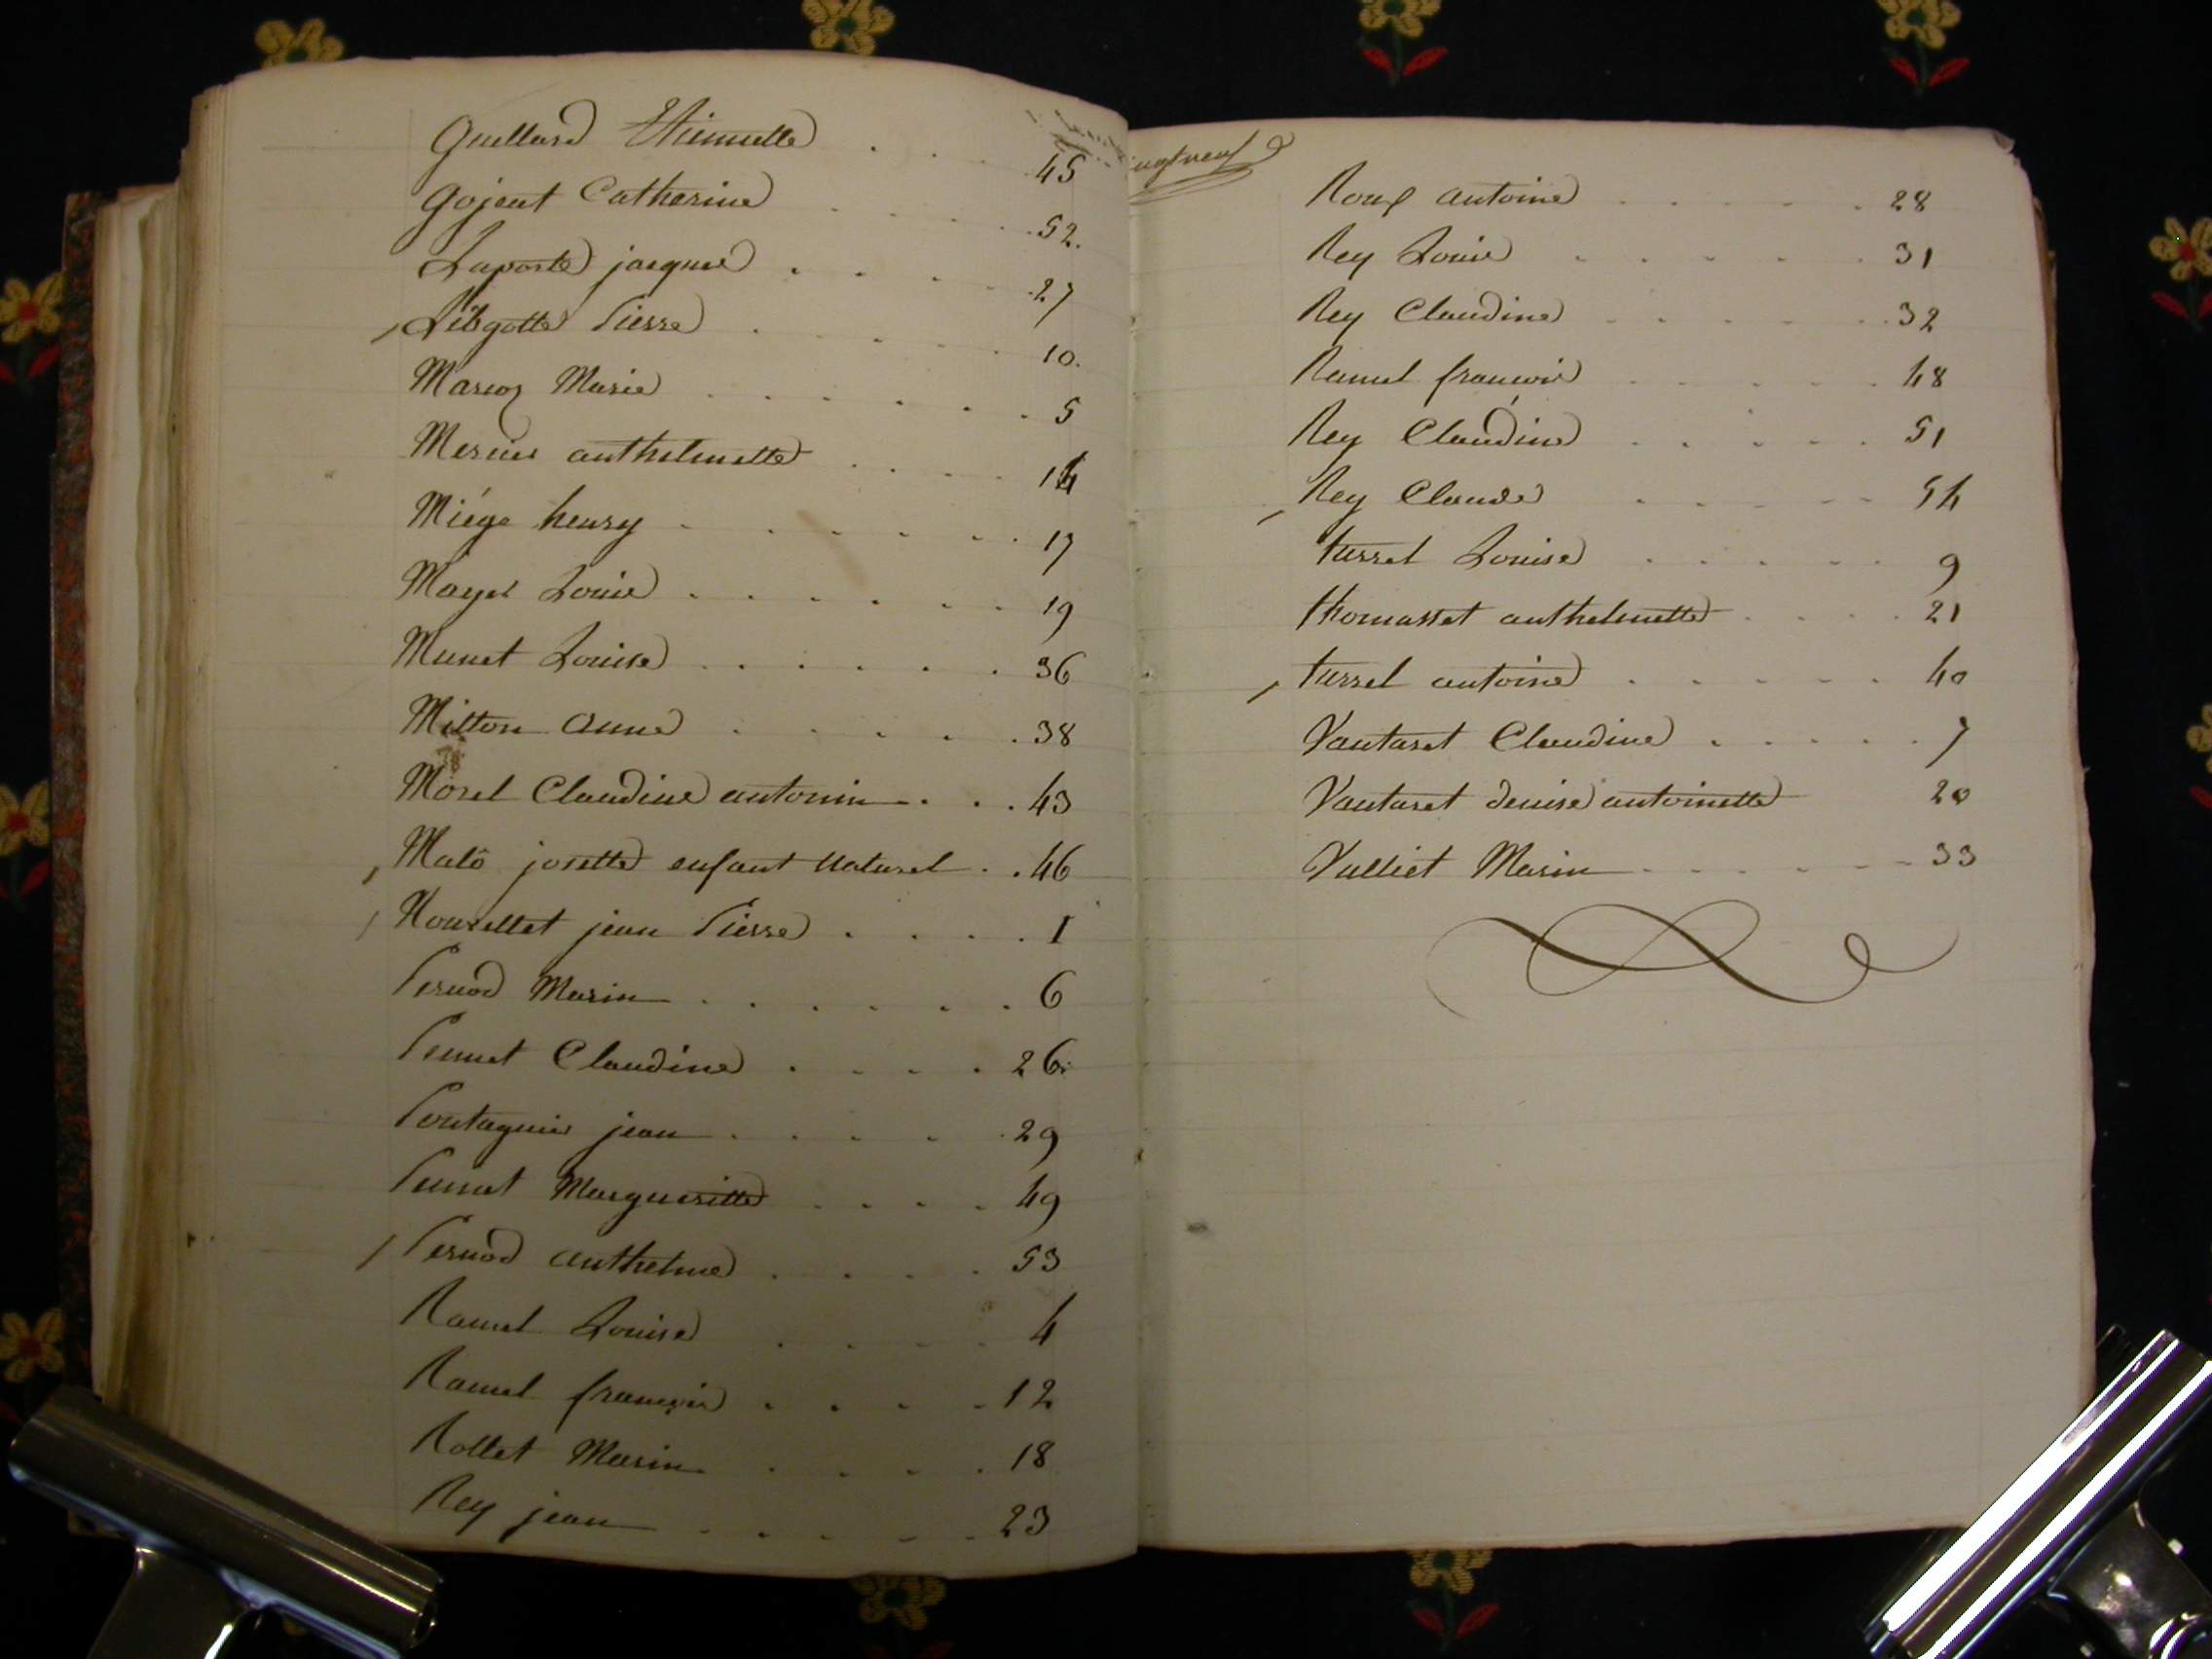 Guillard Etiennette . . . 45
Gojeat Catherine . . . . . 52.
Laporte jacques . . . . . 27
Pierre . . . . . 10.
Marcoz Marie . . . . . . 5
Mercier anthelmette . . . . 14
Miége henry . . . . . . 17
Mayet Louis . . . . . . 19
Munet Louise . . . . . 36
Mitton anne . . . . . 38
Morel Claudine antonin . . . 43
Malô josette enfant Naturel . . 46
Nouvellet jean Pierre . . . . 1
Pernod Marin . . . . . . 6
Peunet Claudine . . . . 26
Pontagnier jean . . . . . 29
Peunet Margueritte . . . . 49
Pernod anthelme . . . . 53
Ramel Louise . . . . 4
Ramel françois . . . . 12
Rollet Marin . . . . 18
Rey jean . . . . . 23
ingtneuf
Roux antoine . . . . . 28
Rey Louis . . . . . 31
Rey Claudine . . . . . 32
Ramel francois . . . . . 48
Rey Claudine . . . . . 51
Rey Claude . . . . . 54
turrel Louise . . . . . 9
thomasset anthelmette . . . . 21
turrel antoine . . . . . 40
Vautaret Claudine . . . . . 7
Vautaret denise antoinette 20
Vulliet Marin . . . . . . 33